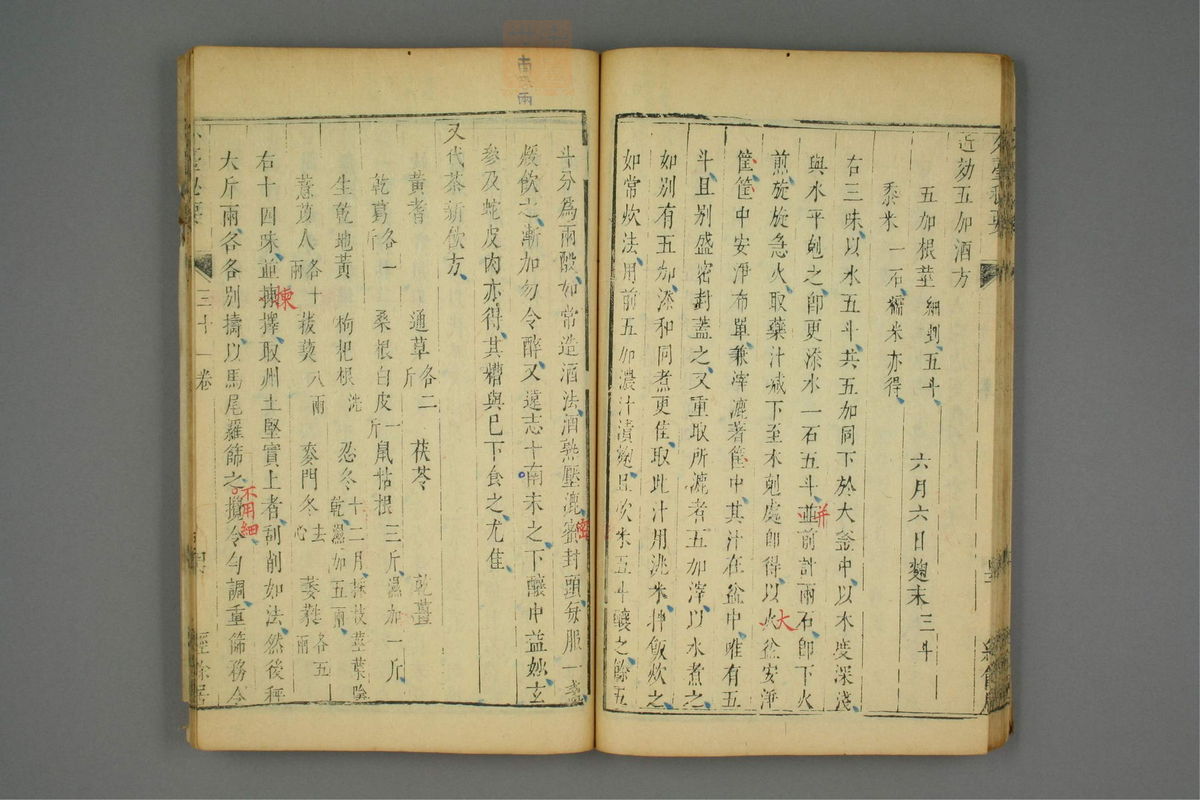 近効五加酒方
五加根莖細剉五斗 六月六日麴末三斗
黍米一石糯米亦得
右三味以水五斗共五加同下於大釜中以木度深淺
與水平剋之即更添水一石五斗並前計兩石即下火
併
煎旋旋急火取藥汁減下至木剋處即得以火盆安淨
大
筐筐中安淨布單兼滓漉著筐中其汁在盆中唯有五
斗且別盛密封蓋之又重取所漉者五加滓以水煮之
如別有五加添和同煮更佳取此汁用洮米押飯炊之
如常炊法用前五加濃汁漬麴且炊米五斗釀之餘五
斗分爲兩酘如常造酒法酒熟壓漉密封頭每服一盞
密
煖飲之漸加勿令醉又遠志十南末之下釀中益妙玄
參及蛇皮肉亦得其糟與巳下食之尤佳
又代茶新飲方
黃耆 通草各二斤 茯苓 乾薑
乾葛各一斤 桑根白皮一斤 鼠粘根三斤濕加一斤
生乾地黃 枸杞根洗 忍冬十二月採枝莖葉陰乾濕加五兩
薏苡人各十兩 菝葜八兩 麥門冬去心 萎蕤各五兩
右十四味並揀擇取州土堅實上者刮削如法然後秤
楝
大斤兩各各別擣以馬尾羅篩之攪令勻調重篩務令
不用細
外臺秘要
三十一卷
經餘居